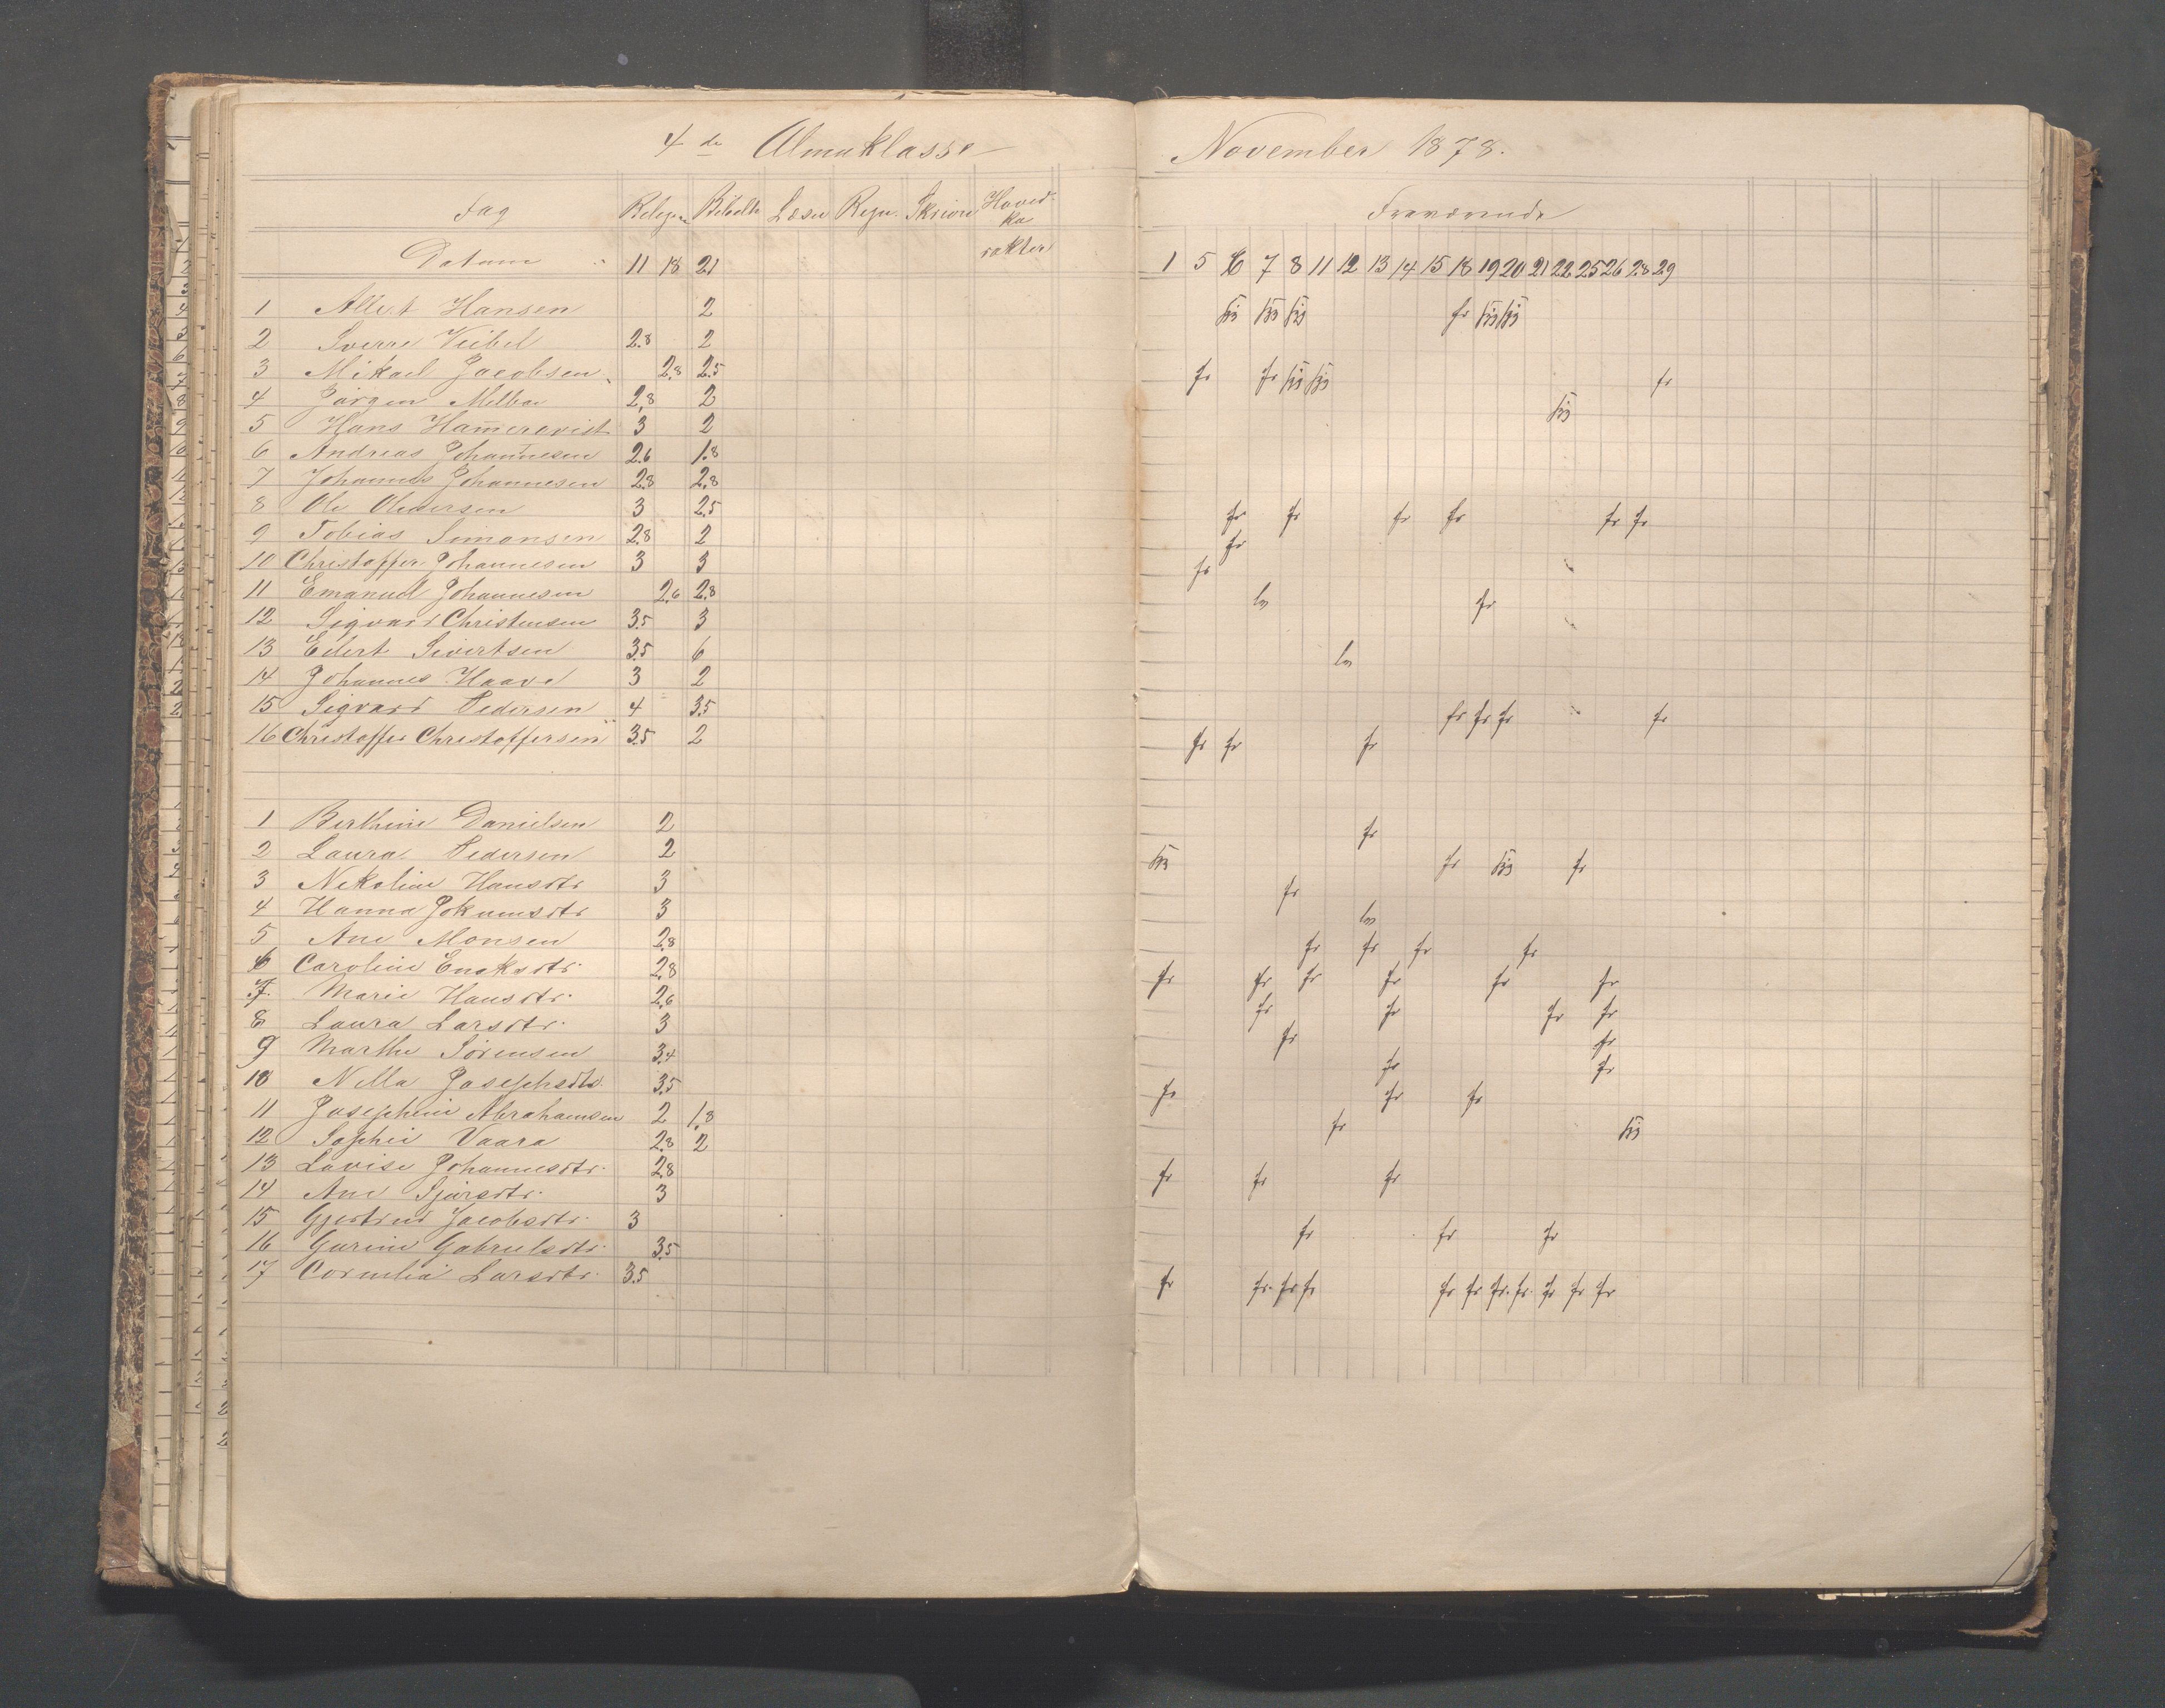 4de Almuklasse
Fag Religion Bibelh Læsn Regn. Skrivn Hoved-karakter
Datum 11 18 21
1 Albert Hansen 2
2 Sverre Veibel 2.8 2
3 Mikael Jacobsen 2,8 2.5
4 Jørgen Melbae 2,8 2
5 Hans Hamerqvist 3 2
6 Andreas Johannesen 2.6 1.8
7 Johannes Johannesen 2.8 2,8
8 Ole Pedersen 3 2,5
9 Tobias Simonsen 2.8 2
10 Christoffer Johannesen 3 3
11 Emanuel Johannesen 2,6 2.8
12 Sigvard Christensen 3.5 3
13 Eilert Sivertsen 3.5 6
14 Johannes Haave 3 2
15 Sigvard Pedersen 4 3.5
16 Christoffer Christoffersen 3.5 2
1 Berthine Danielsen 2
2 Laura Pedersen 2
3 Nikoline Hansdtr 3
4 Hanna Jokumsdtr 3
5 Ane Monsen 2,8
6 Caroline Enoksdtr. 2,8
7. Marie Hansdtr. 2,6
8 Laura Larsdtr. 3
9 Marthe Sørensen 3.4
10 Nilla Josephsdtr 3.5
11 Josephine Abrahamsen 2 1,8
12 Sophie Vaara 2.8 2
13 Lovise Johannesdtr. 2,8
14 Ane Sjursdtr. 3
15 Gjertrud Jacobsdtr. 3
16 Gurine Gabrielsdtr. 3.5
17 Cornelia Larsdtr. 3.5
November 1878.
Fraværende
1 5 6 7 8 11 12 13 14 15 18 19 20 21 22 25 26 28 29
fr
fr fr fr
fr fr fr fr fr fr
fr
fr
fr
fr fr fr fr
fr fr fr
fr
fr fr
fr
fr fr fr fr
fr fr fr fr fr fr
fr fr fr fr
fr fr
fr fr
fr fr fr
fr
fr fr fr
fr fr fr
fr fr. fr fr fr fr fr. fr. fr fr fr